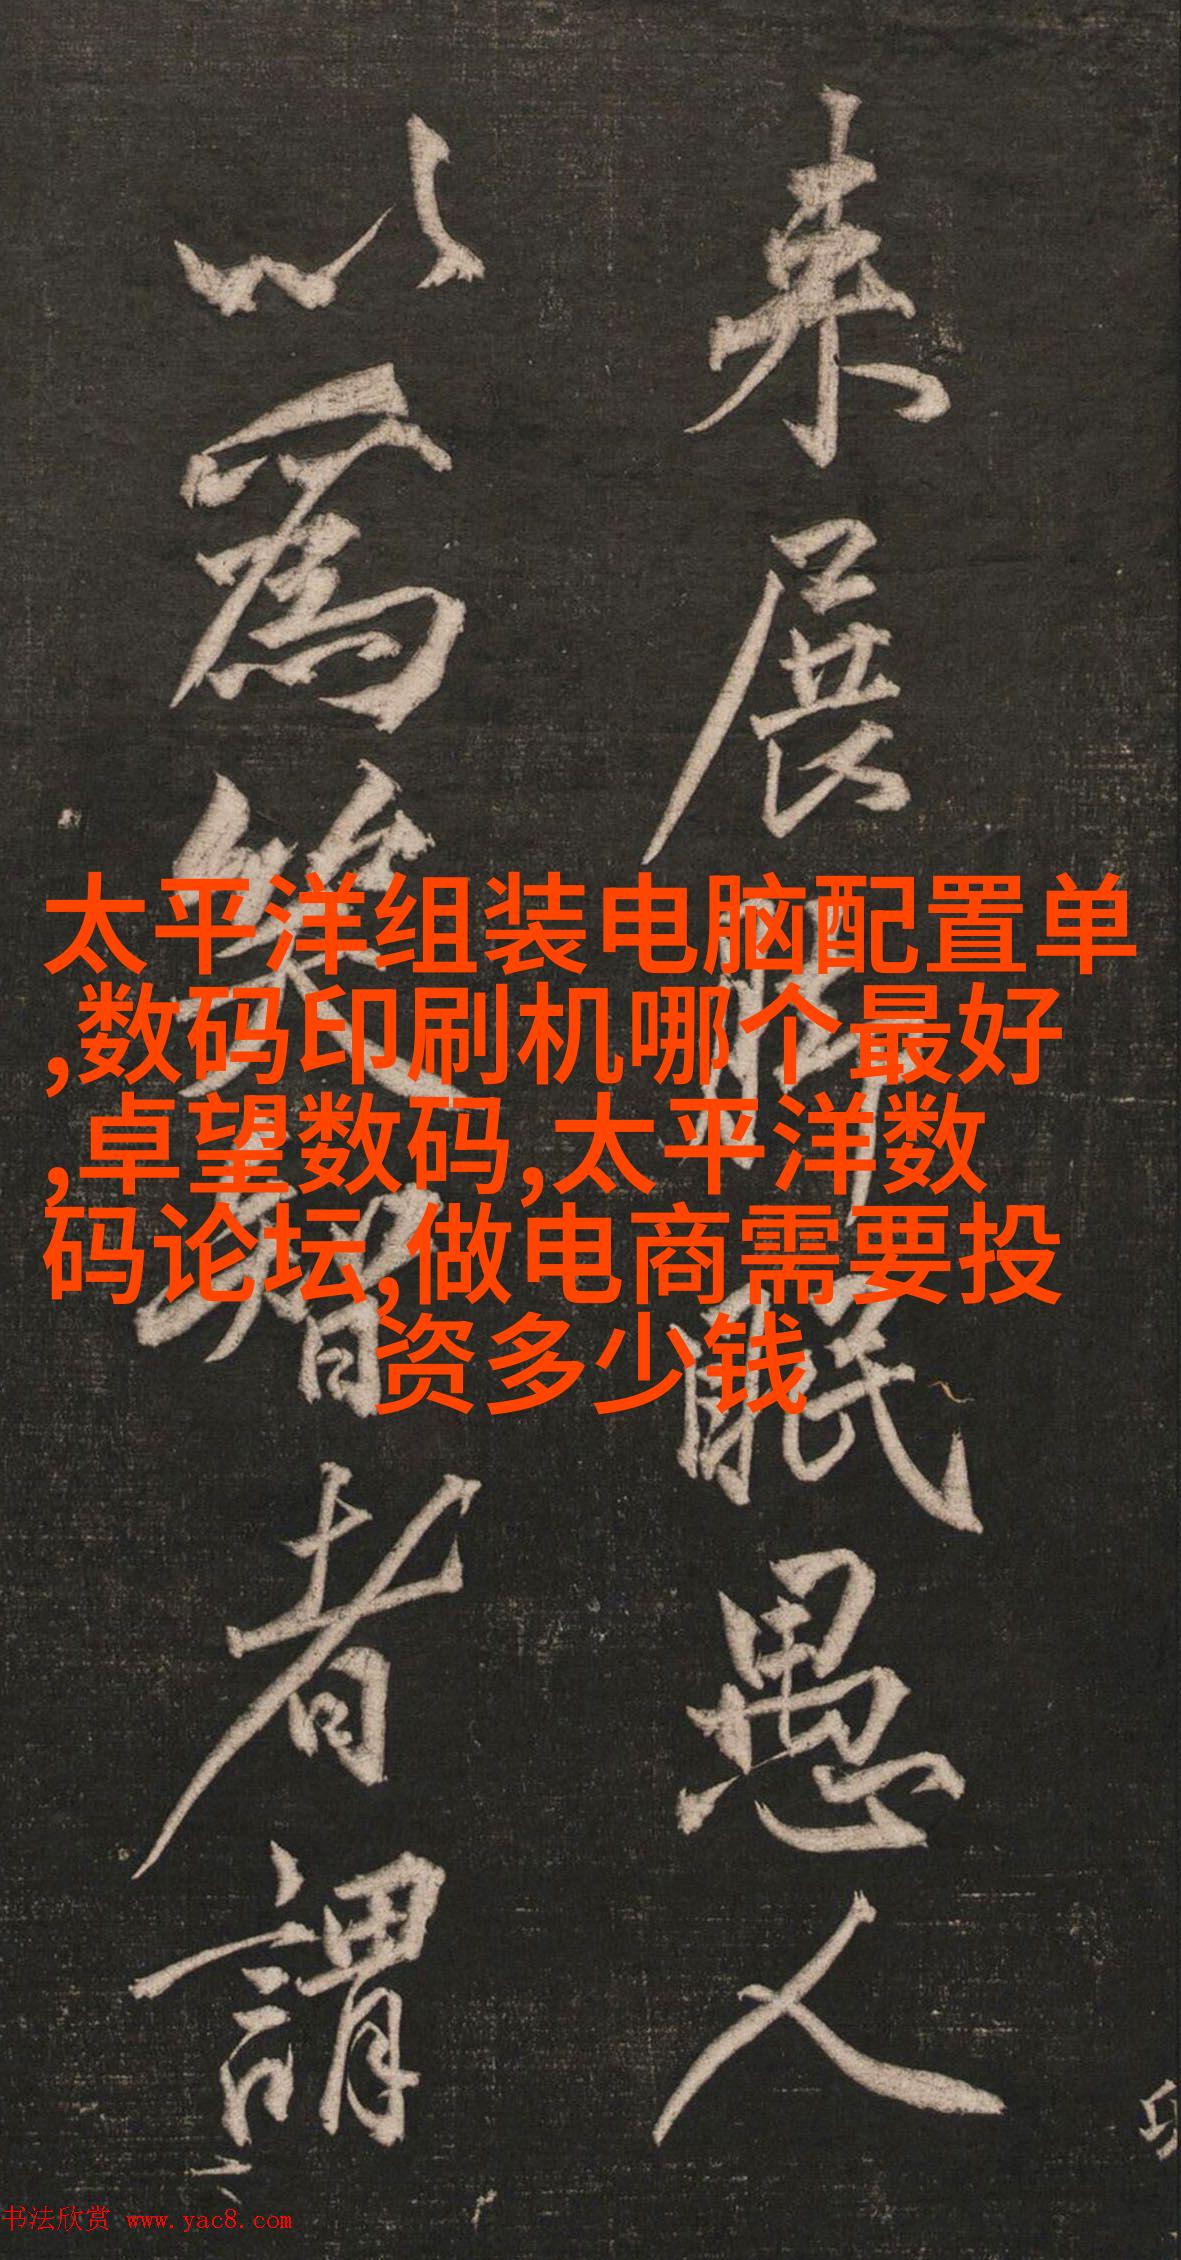 来展脚眠愚人
以為笑智者謂
太平洋组装电脑配置单
,数码印刷机哪个最好
,卓望数码,太平洋数
码论坛,做电商需要投
资多少钱
书法欣赏 www.yac8.com